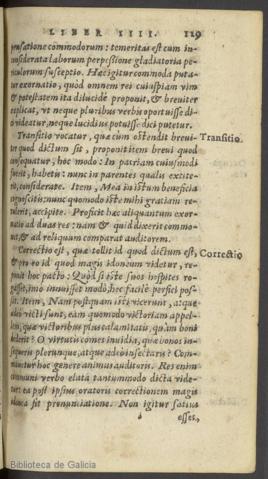 LIBER IIII. 119
pensatione commodorum: temeritas est cum in-
considerata laborum perpessione gladiatoria pe-
riculorum susceptio. Hæc igitur commoda puta-
tur exornatio, quod omnem rei cuiuspiam vim
& potestatem ita dilucidè proponit, & breuiter
explicat, vt neque pluribus verbis oportuisse di-
ci videatur, neque lucidius potuisse dici putetur.
Transitio vocatur, quæ cùm ostendit breui- Transitio.
ter quod dictum sit, proponit item breui quod
consequatur, hoc modo: In patriam cuiusmodi
fuerit, habetis: nunc in parentes qualis extite-
rit, considerate. Item, Mea in istum beneficia
cognoscitis: nunc quomodo iste mihi gratiam re-
tulerit, accipite. Proficit hæc aliquantum exor-
natio ad duas res: nam & quid dixerit commo-
net, & ad reliquum comparat auditorem.
Correctio est, quæ tollit id quod dictum est, Correctio
& pro eo id quod magis idoneum videtur, repo-
nit hoc pacto: Quòd si iste suos hospites ro-
gasset, imò innuisset modò, hoc facilè perfici pos-
set. Item, Nam postquam isti vicerunt, atque
adeò victi sunt, eam quomodo victoriam appel-
lem, quæ victoribus plus calamitatis, quàm boni
dederit? O virtutis comes inuidia, quæ bonos in-
sequeris plerunque, atque adeò insectaris! Com-
mouetur hoc genere animus auditoris. Res enim
communi verbo elata tantummodo dicta vide-
tur: ea post ipsius oratoris correctionem magis
idonea fit pronunciatione. Non igitur satius
esset,
Biblioteca de Galicia